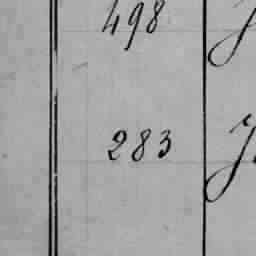 498
283